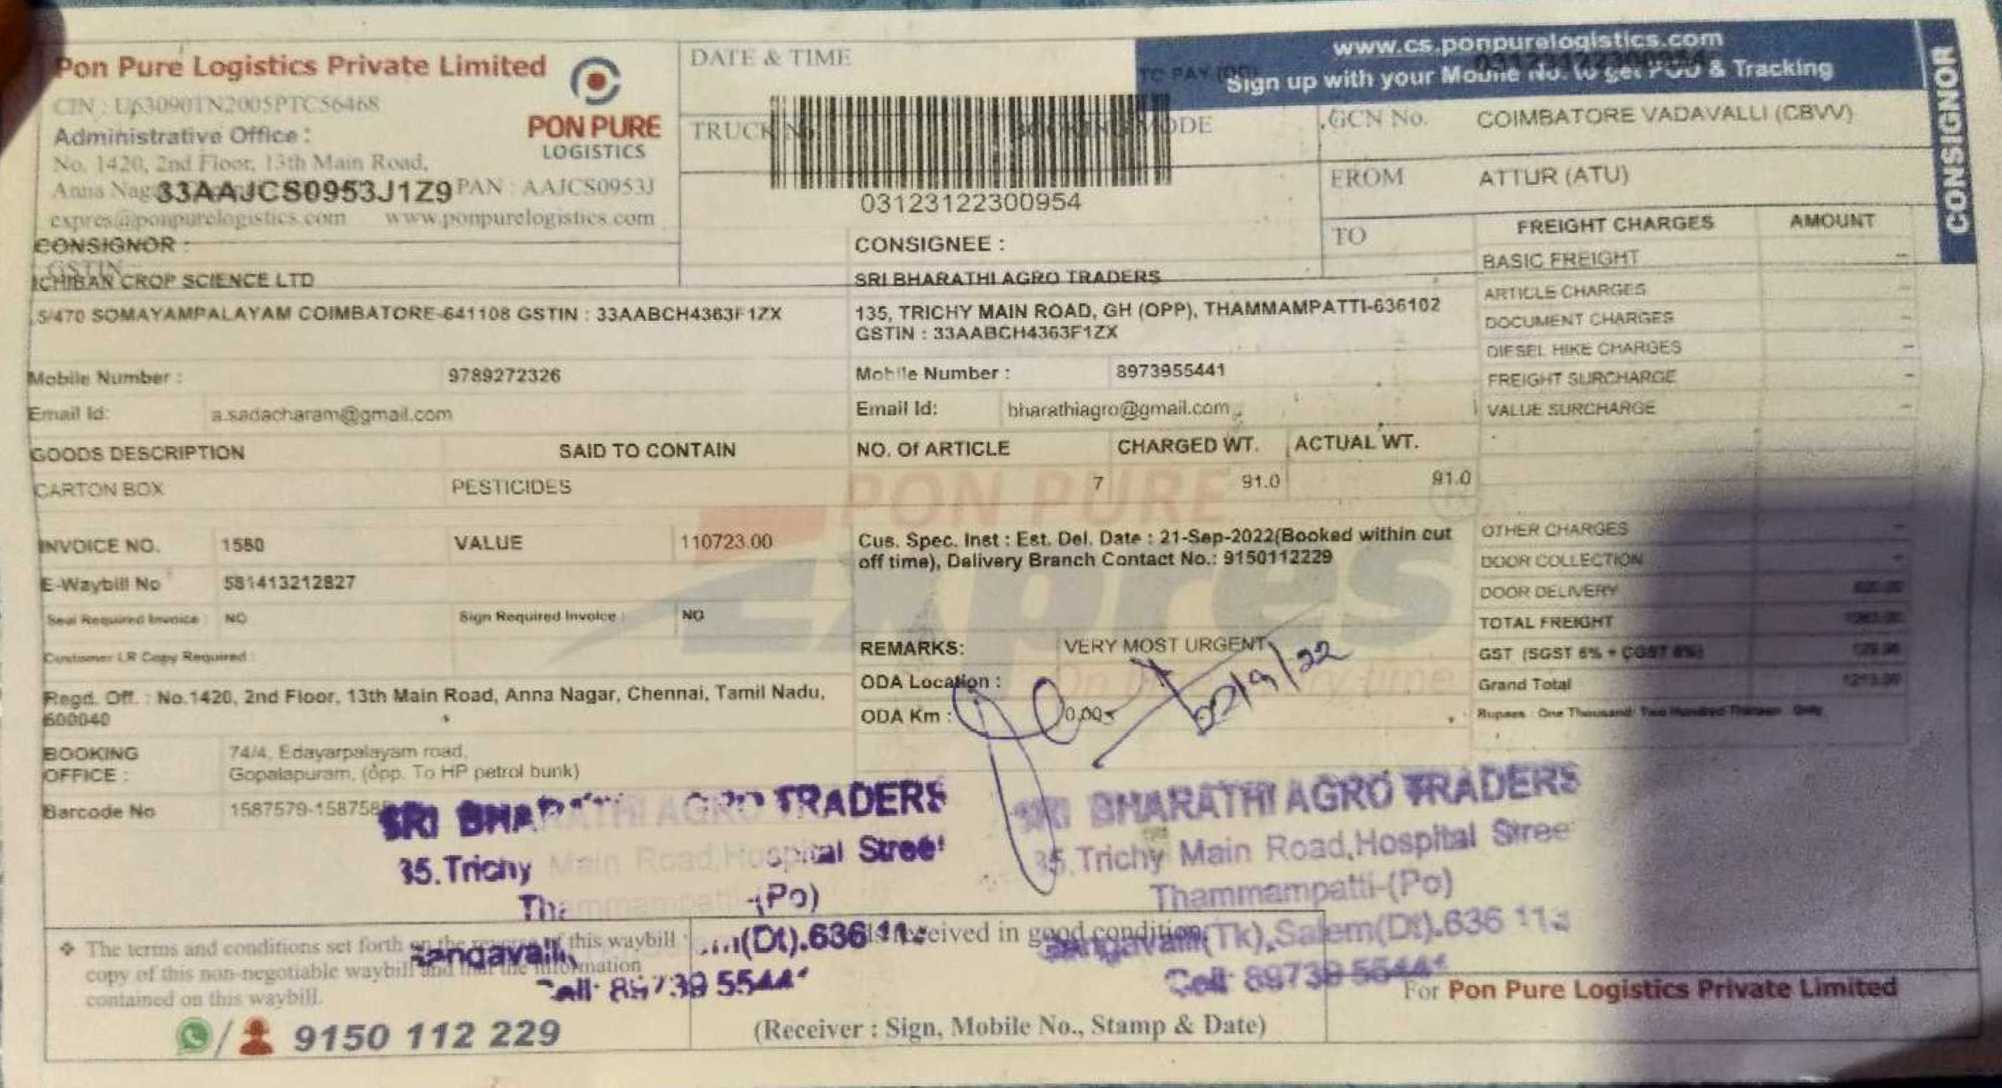 Pon Pure Logistics Private Limited
CIN : U63090TN2005PTC56468
Administrative Office :
No. 1420, 2nd Floor, 13th Main Road,
Anna Nag 33AAJCS0953J1Z9 PAN : AAJCS0953J
expres@ponpurelogistics.com www.ponpurelogistics.com
PON PURE
LOGISTICS
DATE & TIME
TRUCK
MODE
03123122300954
www.cs.ponpurelogistics.com
Sign up with your Mobile No. to get POD & Tracking
TO PAY
CONSIGNOR
GCN No. COIMBATORE VADAVALLI (CBVV)
FROM ATTUR (ATU)
TO
CONSIGNOR :
GSTIN
ICHIBAN CROP SCIENCE LTD
5/470 SOMAYAMPALAYAM COIMBATORE-641108 GSTIN : 33AABCH4363F1ZX
Mobile Number : 9789272326
Email Id: a.sadacharam@gmail.com
CONSIGNEE :
SRI BHARATHI AGRO TRADERS
135, TRICHY MAIN ROAD, GH (OPP), THAMMAMPATTI-636102
GSTIN : 33AABCH4363F1ZX
Mobile Number : 8973955441
Email Id: bharathiagro@gmail.com
FREIGHT CHARGES AMOUNT
BASIC FREIGHT –
ARTICLE CHARGES –
DOCUMENT CHARGES –
DIESEL HIKE CHARGES –
FREIGHT SURCHARGE –
VALUE SURCHARGE –
GOODS DESCRIPTION SAID TO CONTAIN NO. Of ARTICLE CHARGED WT. ACTUAL WT.
CARTON BOX PESTICIDES 7 91.0 91.0
PON PURE
Expres
INVOICE NO. 1580 VALUE 110723.00
E-Waybill No 581413212827
Seal Required Invoice : NO Sign Required Invoice : NO
Customer LR Copy Required :
Cus. Spec. Inst : Est. Del. Date : 21-Sep-2022(Booked within cut
off time), Delivery Branch Contact No.: 9150112229
REMARKS: VERY MOST URGENT
ODA Location :
ODA Km : 0.00
OTHER CHARGES –
DOOR COLLECTION –
DOOR DELIVERY
TOTAL FREIGHT
GST (SGST 6% + CGST 6%)
Grand Total 1213.00
Rupees : One Thousand Two Hundred Thirteen Only
Regd. Off. : No.1420, 2nd Floor, 13th Main Road, Anna Nagar, Chennai, Tamil Nadu,
600040
BOOKING
OFFICE :
74/4, Edayarpalayam road,
Gopalapuram, (opp. To HP petrol bunk)
Barcode No 1587579-158758
SRI BHARATHI AGRO TRADERS
35.Trichy Main Road,Hospital Street
Thammampatti-(Po)
(Dt).636 11
Cell: 89739 5544
SRI BHARATHI AGRO TRADERS
35.Trichy Main Road,Hospital Stree
Thammampatti-(Po)
(Tk),Salem(Dt).636 11
Cell: 89739 5544
The terms and conditions set forth on the reverse of this waybill
copy of this non-negotiable waybill and that the information
contained on this waybill.
received in good condition
9150 112 229
(Receiver : Sign, Mobile No., Stamp & Date)
For Pon Pure Logistics Private Limited